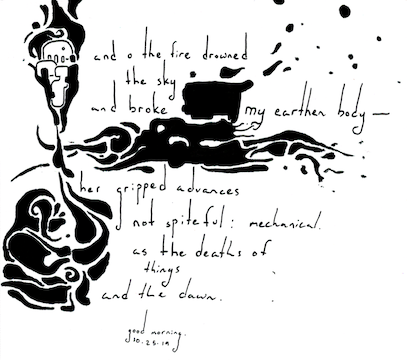 and o the fire drowned
the sky
and broke my earthen body—
her gripped advances
not spiteful: mechanical.
as the deaths of
things
and the dawn.
good morning.
10.28.19